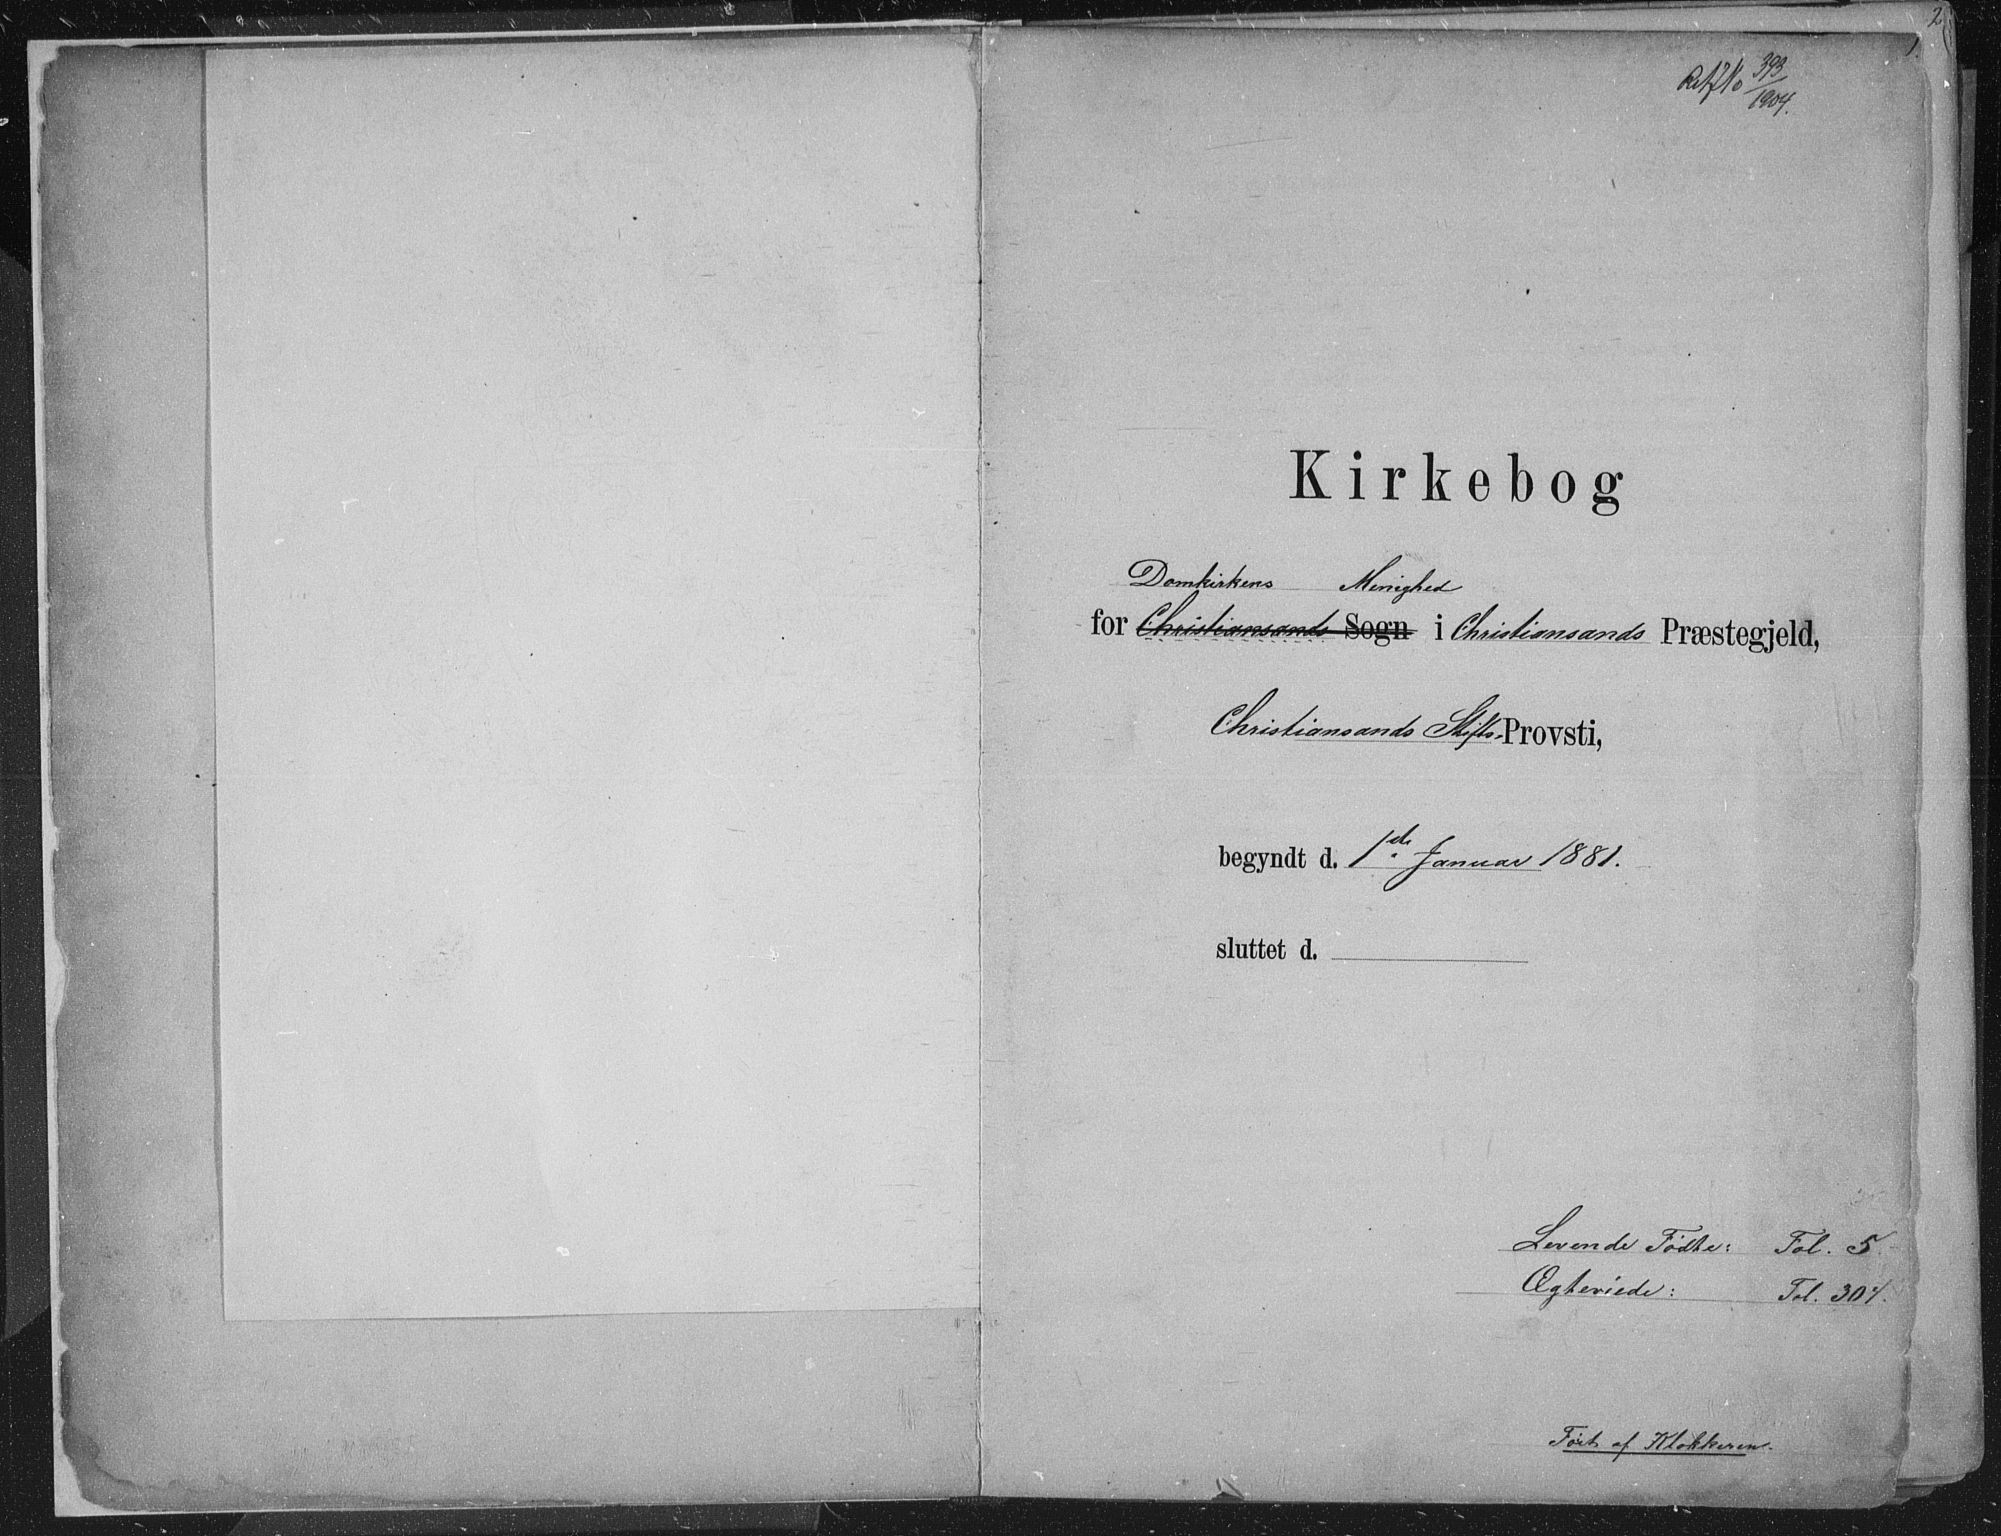 2
1.
No 393/1904.
Kirkebog
Domkirkens Menighed
for Christiansands Sogn i Christiansands Præstegjeld,
Christiansands Stifts-Provsti,
begyndt d. 1ste Januar 1881.
sluttet d.
Levende Fødte: Fol. 5.
Ægteviede: Fol. 304.
Ført af Klokkeren.